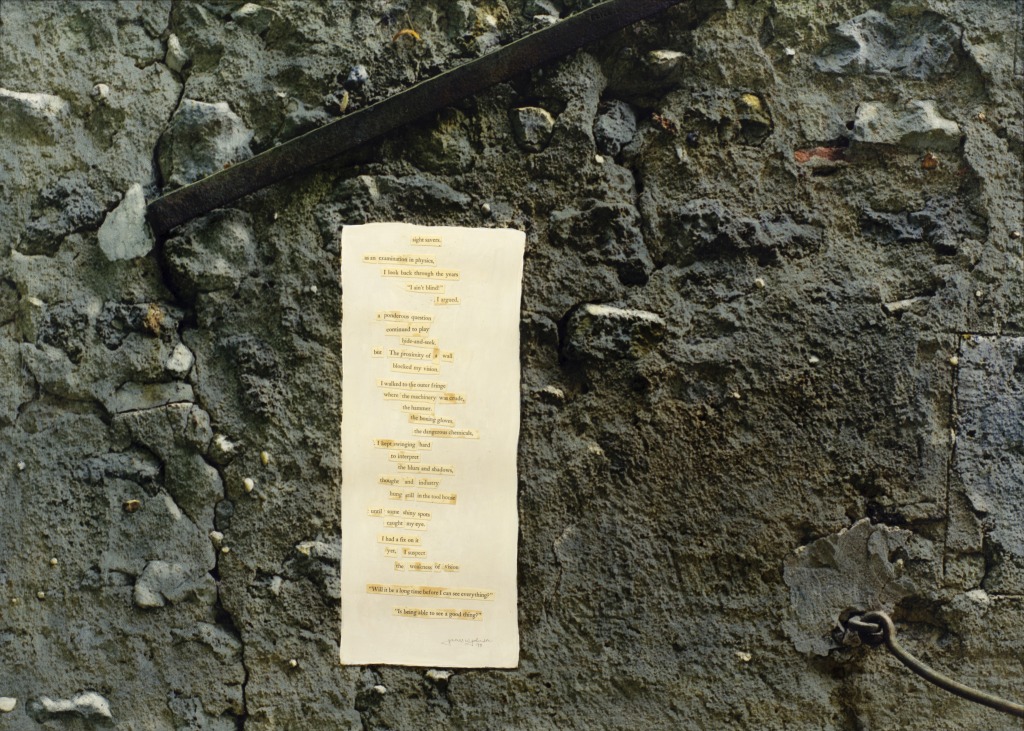 sight savers.
as an examination in physics,
I look back through the years
"I ain't blind!"
I argued.
a ponderous question
continued to play
hide-and-seek.
but The proximity of a wall
blocked my vision.
I walked to the outer fringe
where the machinery was made,
the hammer.
the boxing gloves,
the dangerous chemicals,
I kept swinging hard
to interpret
the blurs and shadows,
thought and industry
hung still in the tool house
until some shiny spots
caught my eye.
I had a fix on it
yet, I suspect
the weakness of vision
"Will it be a long time before I can see everything?"
"Is being able to see a good thing?"